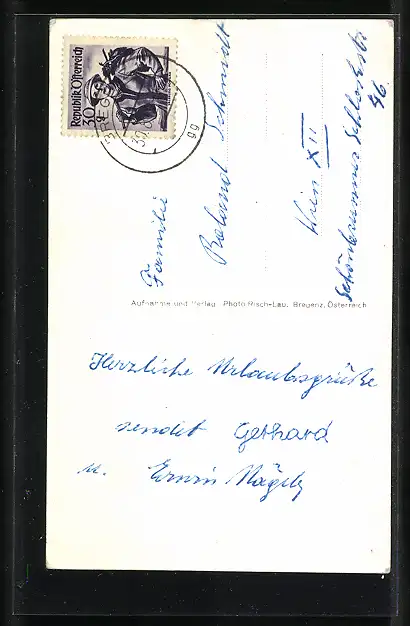 Republik Österreich
30 g
BREGENZ
Familie
Roland Schmidt
Wien XII
Schönbrunner Schlosstr.
46.
Aufnahme und Verlag Photo Risch-Lau, Bregenz, Österreich
Herzliche Urlaubsgrüße
sendet Gerhard
u. Erwin Nägely